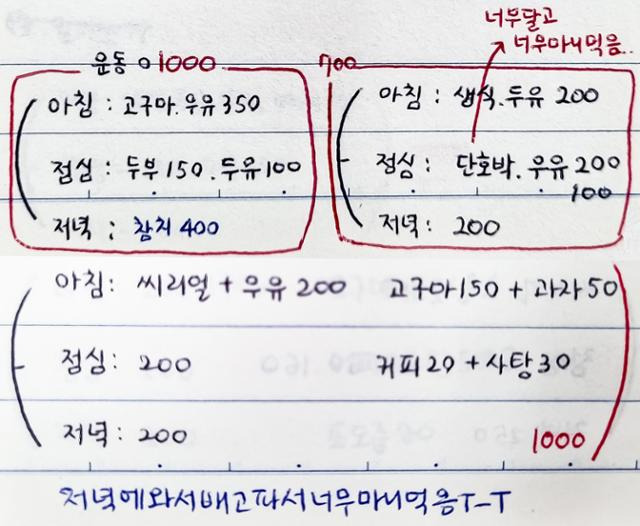 운동 0 1000
아침 : 고구마. 우유 350
점심 : 두부 150. 두유 100
저녁 : 참치 400
너무달고
너무마니먹음..
700
아침 : 생식. 두유 200
점심 : 단호박. 우유 200
100
저녁 : 200
아침 : 씨리얼 + 우유 200 고구마 150 + 과자 50
점심 : 200 커피 20 + 사탕 30
저녁 : 200 1000
저녁에와서배고파서너무마니먹음T-T